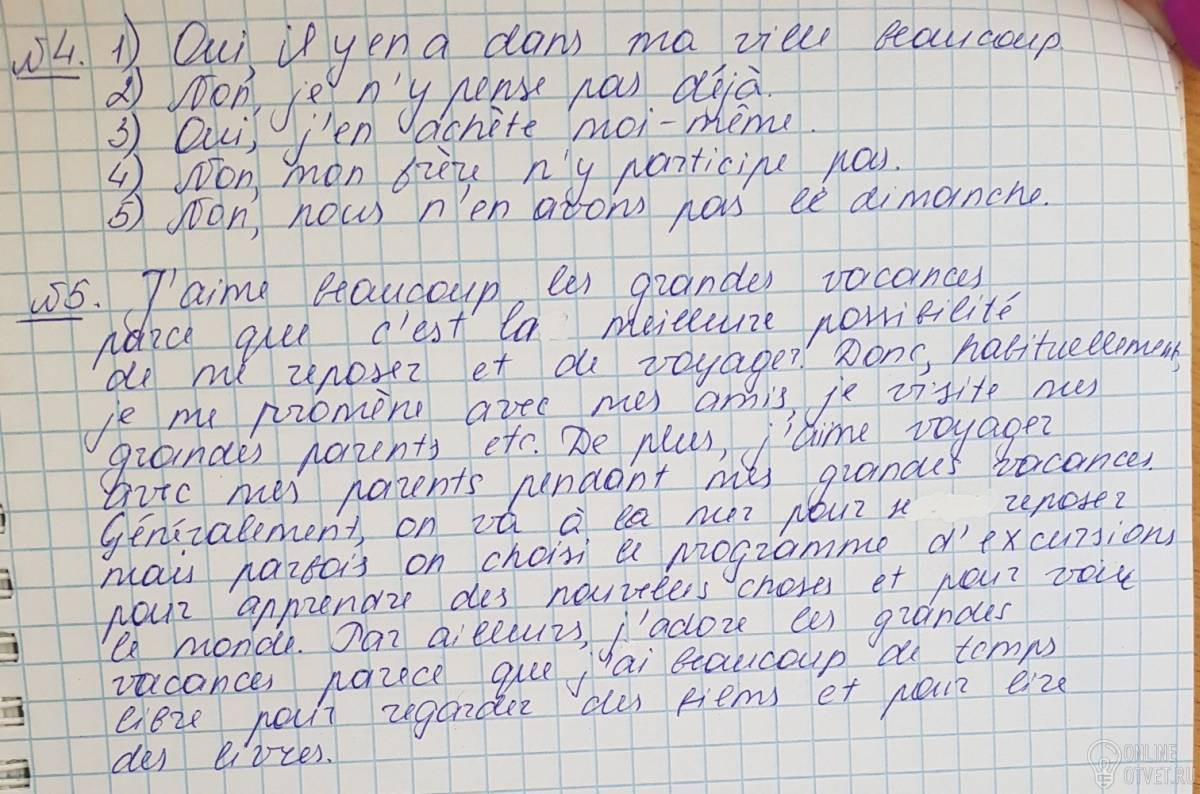 №4. 1) Oui, il y en a dans ma ville beaucoup.
2) Non, je n'y pense pas déjà.
3) Oui, j'en achète moi-même.
4) Non, mon frère n'y participe pas.
5) Non, nous n'en avons pas le dimanche.
№5. J'aime beaucoup les grandes vacances
parce que c'est la meilleure possibilité
de me reposer et de voyager. Donc, habituellement,
je me promène avec mes amis, je visite mes
grandes parents etc. De plus, j'aime voyager
avec mes parents pendant mes grandes vacances.
Généralement, on va à la mer pour se reposer
mais parfois on choisi le programme d'excursions
pour apprendre des nouvelles choses et pour voir
le monde. Par ailleurs, j'adore les grandes
vacances parece que j'ai beaucoup de temps
libre pour regarder des films et pour lire
des livres.
ONLINE
OTVET.RU